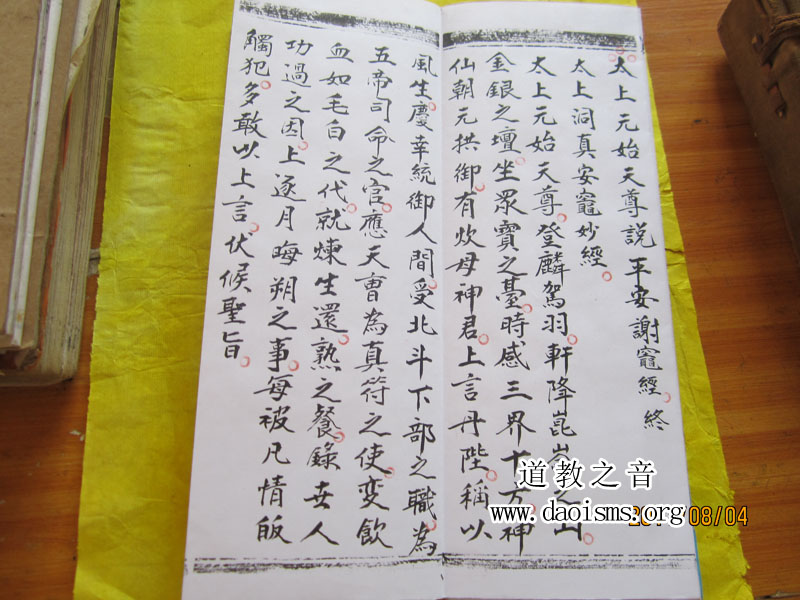 太上元始天尊説平安謝竈經終
太上洞真安竈妙經
太上元始天尊登麟駕羽軒降崑崙之山
金銀之壇坐眾寶之臺時感三界十方神
仙朝元拱御有炊母神君上言丹陛稱以
風生慶幸統御人間受北斗下部之職為
五帝司命之官應天曹為真符之使變飲
血如毛白之代就煉生還熟之餐錄世人
功過之因上逐月晦朔之事每被凡情皈
觸犯多敢以上言伏候聖旨
道教之音
www.daoisms.org
08/04